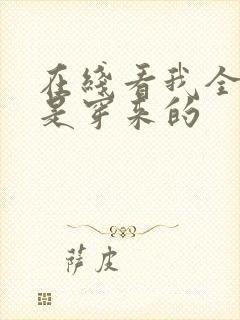 在綫看我全
是穿来的
萨皮